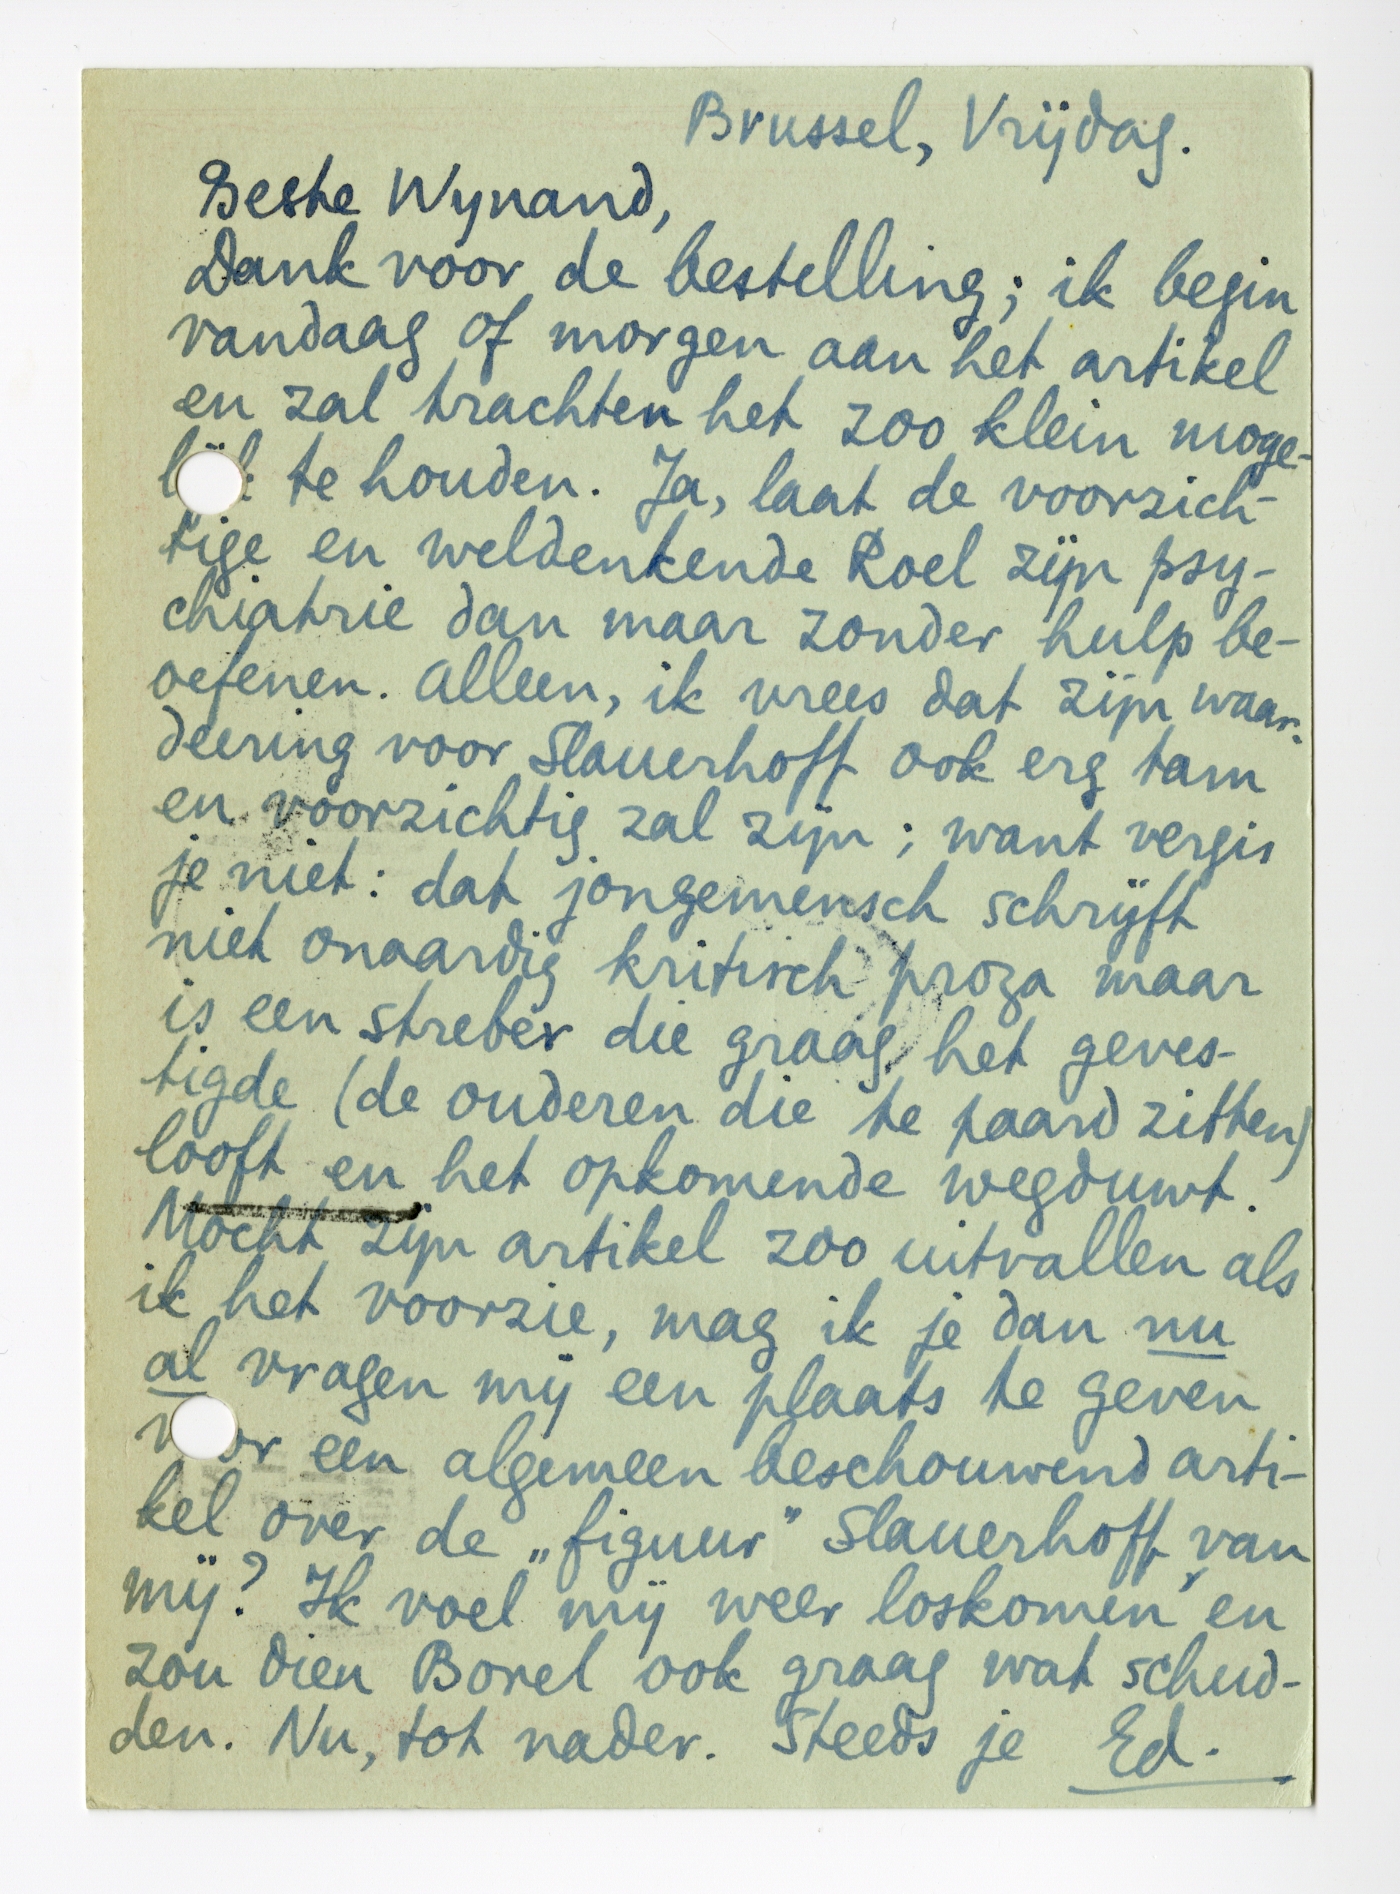 Brussel, Vrijdag.
Beste Wynand,
Dank voor de bestelling; ik begin
vandaag of morgen aan het artikel
en zal trachten het zoo klein moge-
lijk te houden. Ja, laat de voorzich-
tige en weldenkende Roel zijn psy-
chiatrie dan maar zonder hulp be-
oefenen. Alleen, ik vrees dat zijn waar-
deering voor Slauerhoff ook erg tam
en voorzichtig zal zijn; want vergis
je niet: dat jongemensch schrijft
niet onaardig kritisch proza maar
is een streber die graag het geves-
tigde (de ouderen die te paard zitten)
looft en het opkomende wegduwt.
Mocht zijn artikel zoo uitvallen als
ik het voorzie, mag ik je dan nu
al vragen mij een plaats te geven
voor een algemeen beschouwend arti-
kel over de „figuur” Slauerhoff, van
mij? Ik voel mij weer loskomen en
zou dien Borel ook graag wat schud-
den. Nu, tot nader. Steeds je Ed.